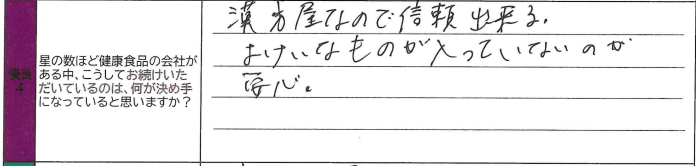 優良
4
星の数ほど健康食品の会社が
ある中、こうしてお続けいた
だいているのは、何が決め手
になっていると思いますか?
漢方屋なので信頼出来る.
よけいなものが入っていないのが
安心。